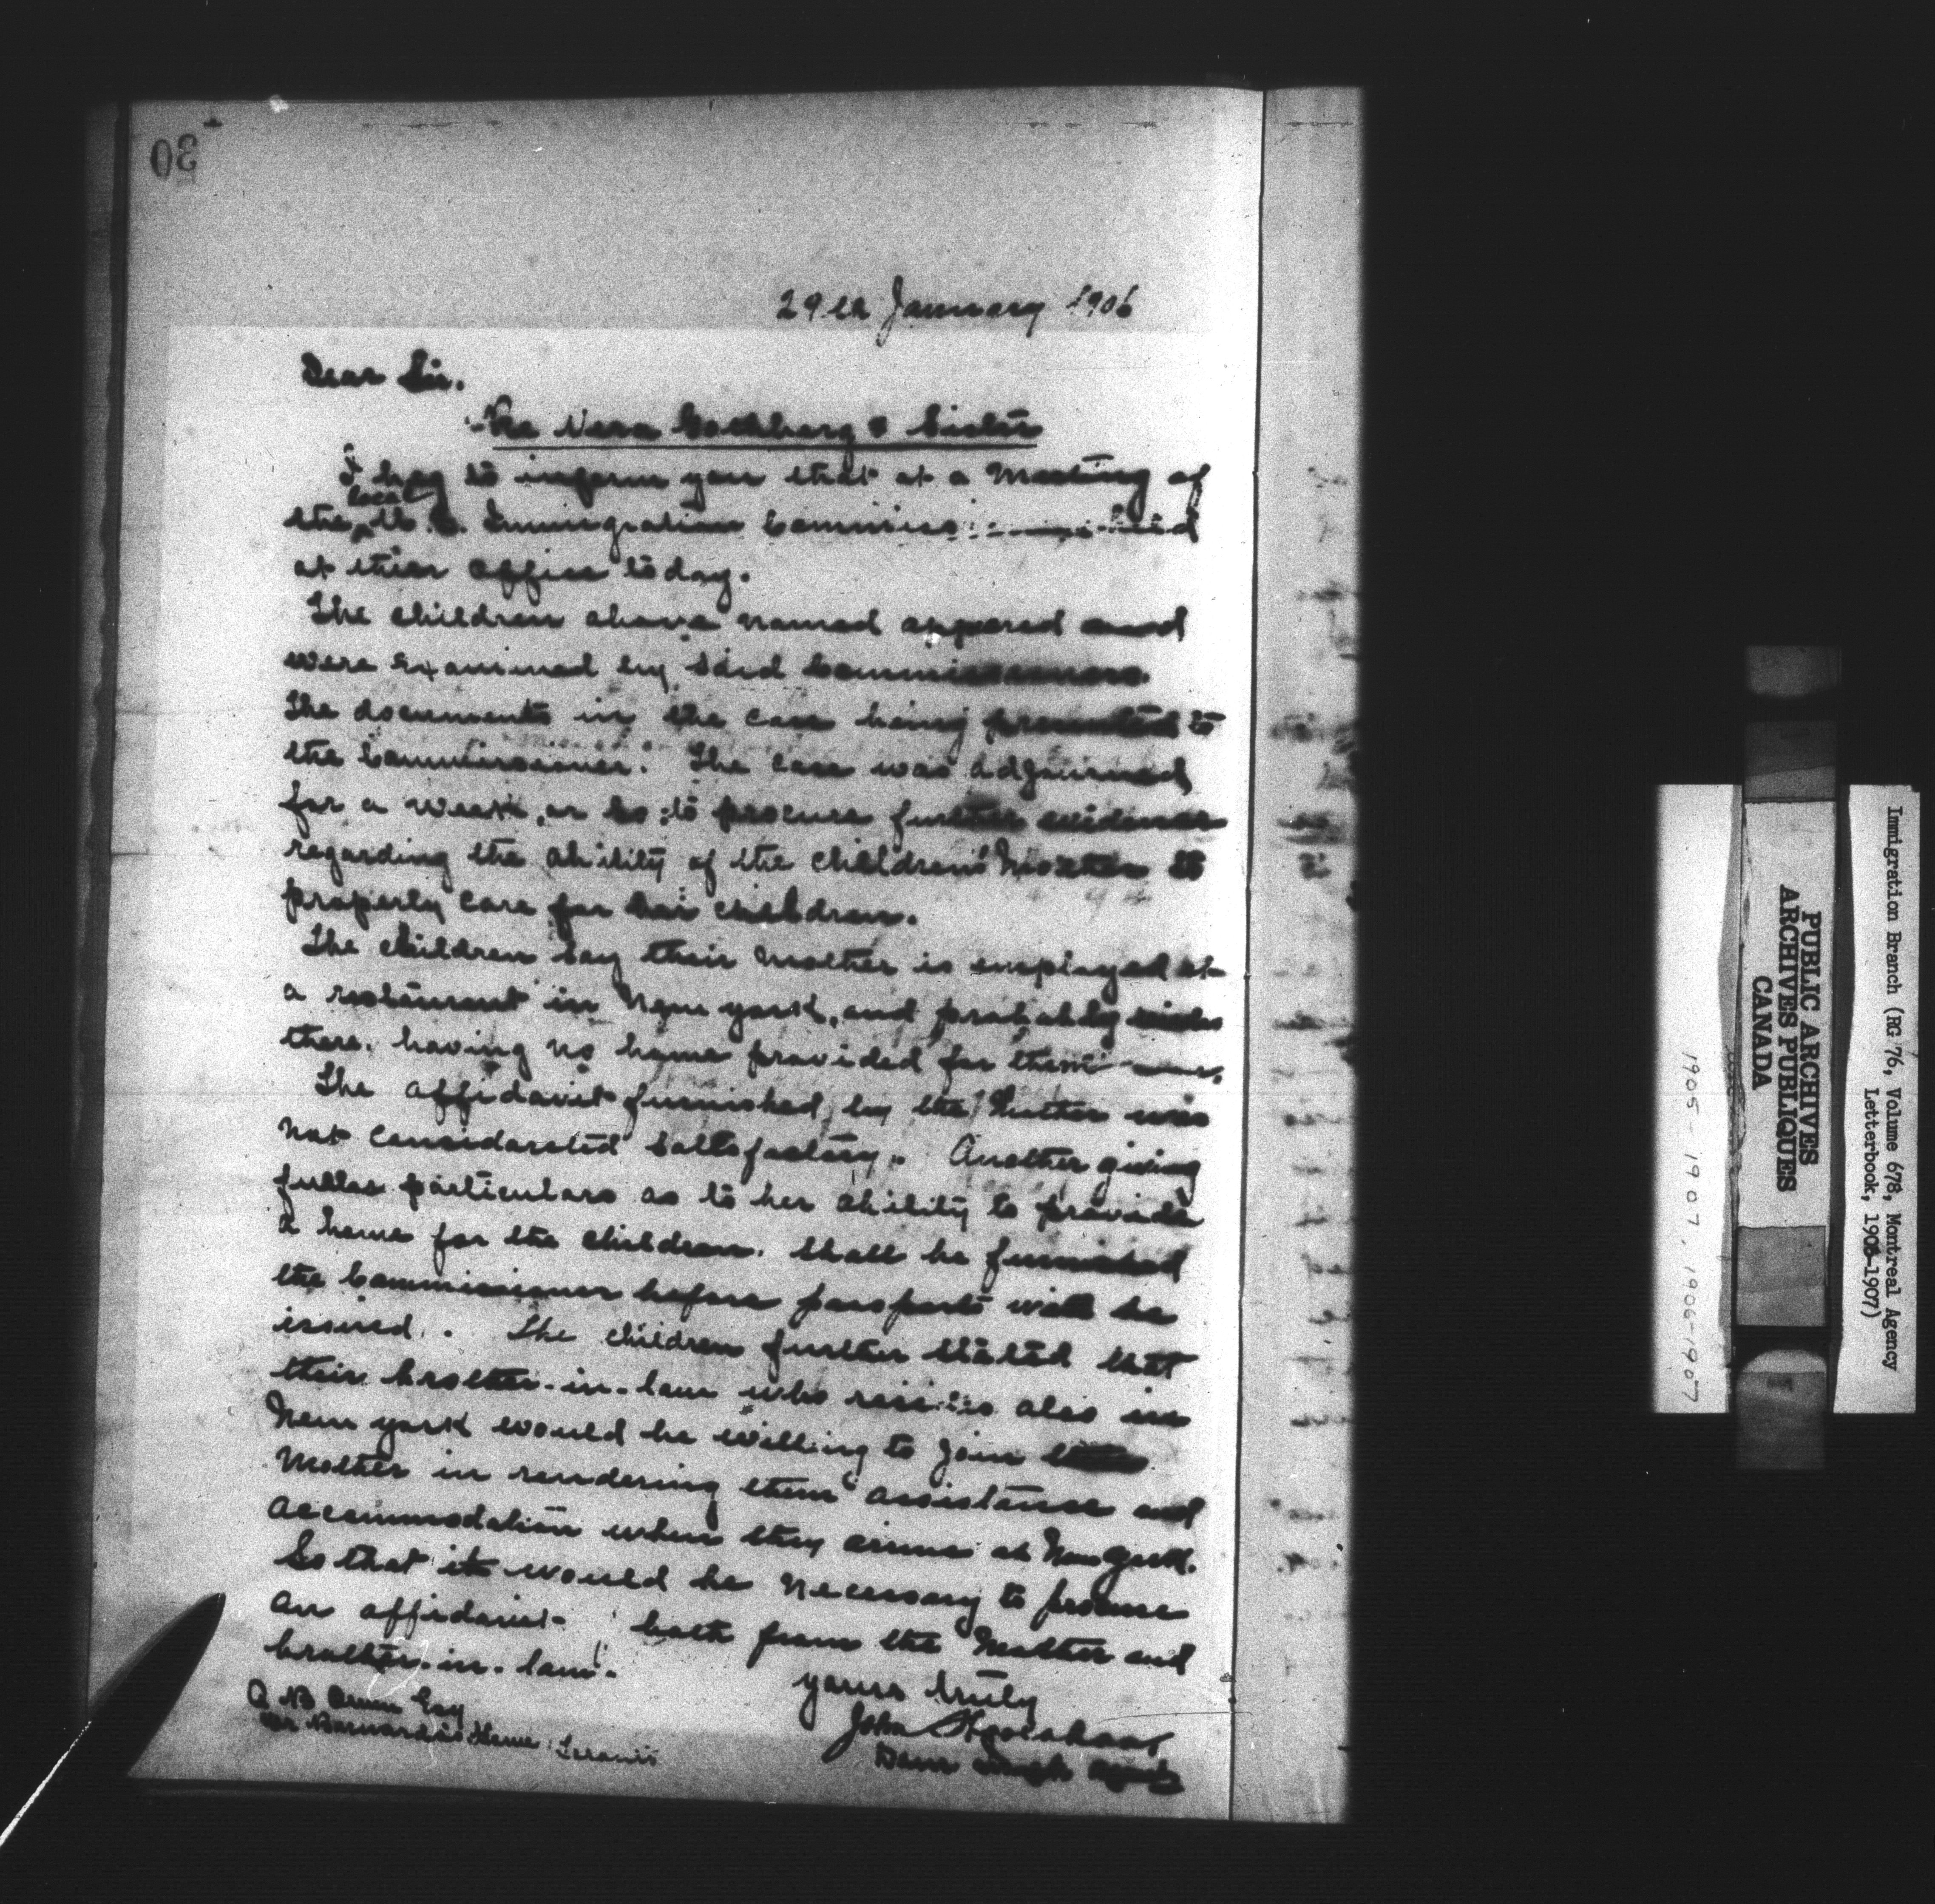 30
29th January 1906
Dear Sir.
Re Vera Gothberg & Sister
I beg to inform you that at a Meeting of
local
the U.S. Immigration held
at their office today.
The children above named appeared and
were Examined by said Commissioners.
The documents in the case being presented to
the Commissioner. The case was adjourned
for a week, or so to procure further evidence
regarding the ability of the children's Mother to
properly care for her children.
The children say their Mother is employed at
a restaurant in New York, and probably
there. having no home provided for them
The affidavit furnished by the Mother was
not satisfactory. Another giving
fuller particulars as to her ability to provide
a home for the children. shall be furnished
the Commissioner before passports will be
issued. The children further stated that
their brother-in-law who resides also in
New York would be willing to join
Mother in rendering them assistance and
accommodation when they arrive at New York.
So that it would be necessary to procure
an affidavit both from the Mother and
brother-in-law.
yours truly
John Hoolahan
Dom Agent
Owen Esq
Dr Barnardo's Home Toronto
PUBLIC ARCHIVES
ARCHIVES PUBLIQUES
CANADA
Immigration Branch (RG 76, Volume 678, Montreal Agency
Letterbook, 1905-1907)
1905-1907, 1906-1907